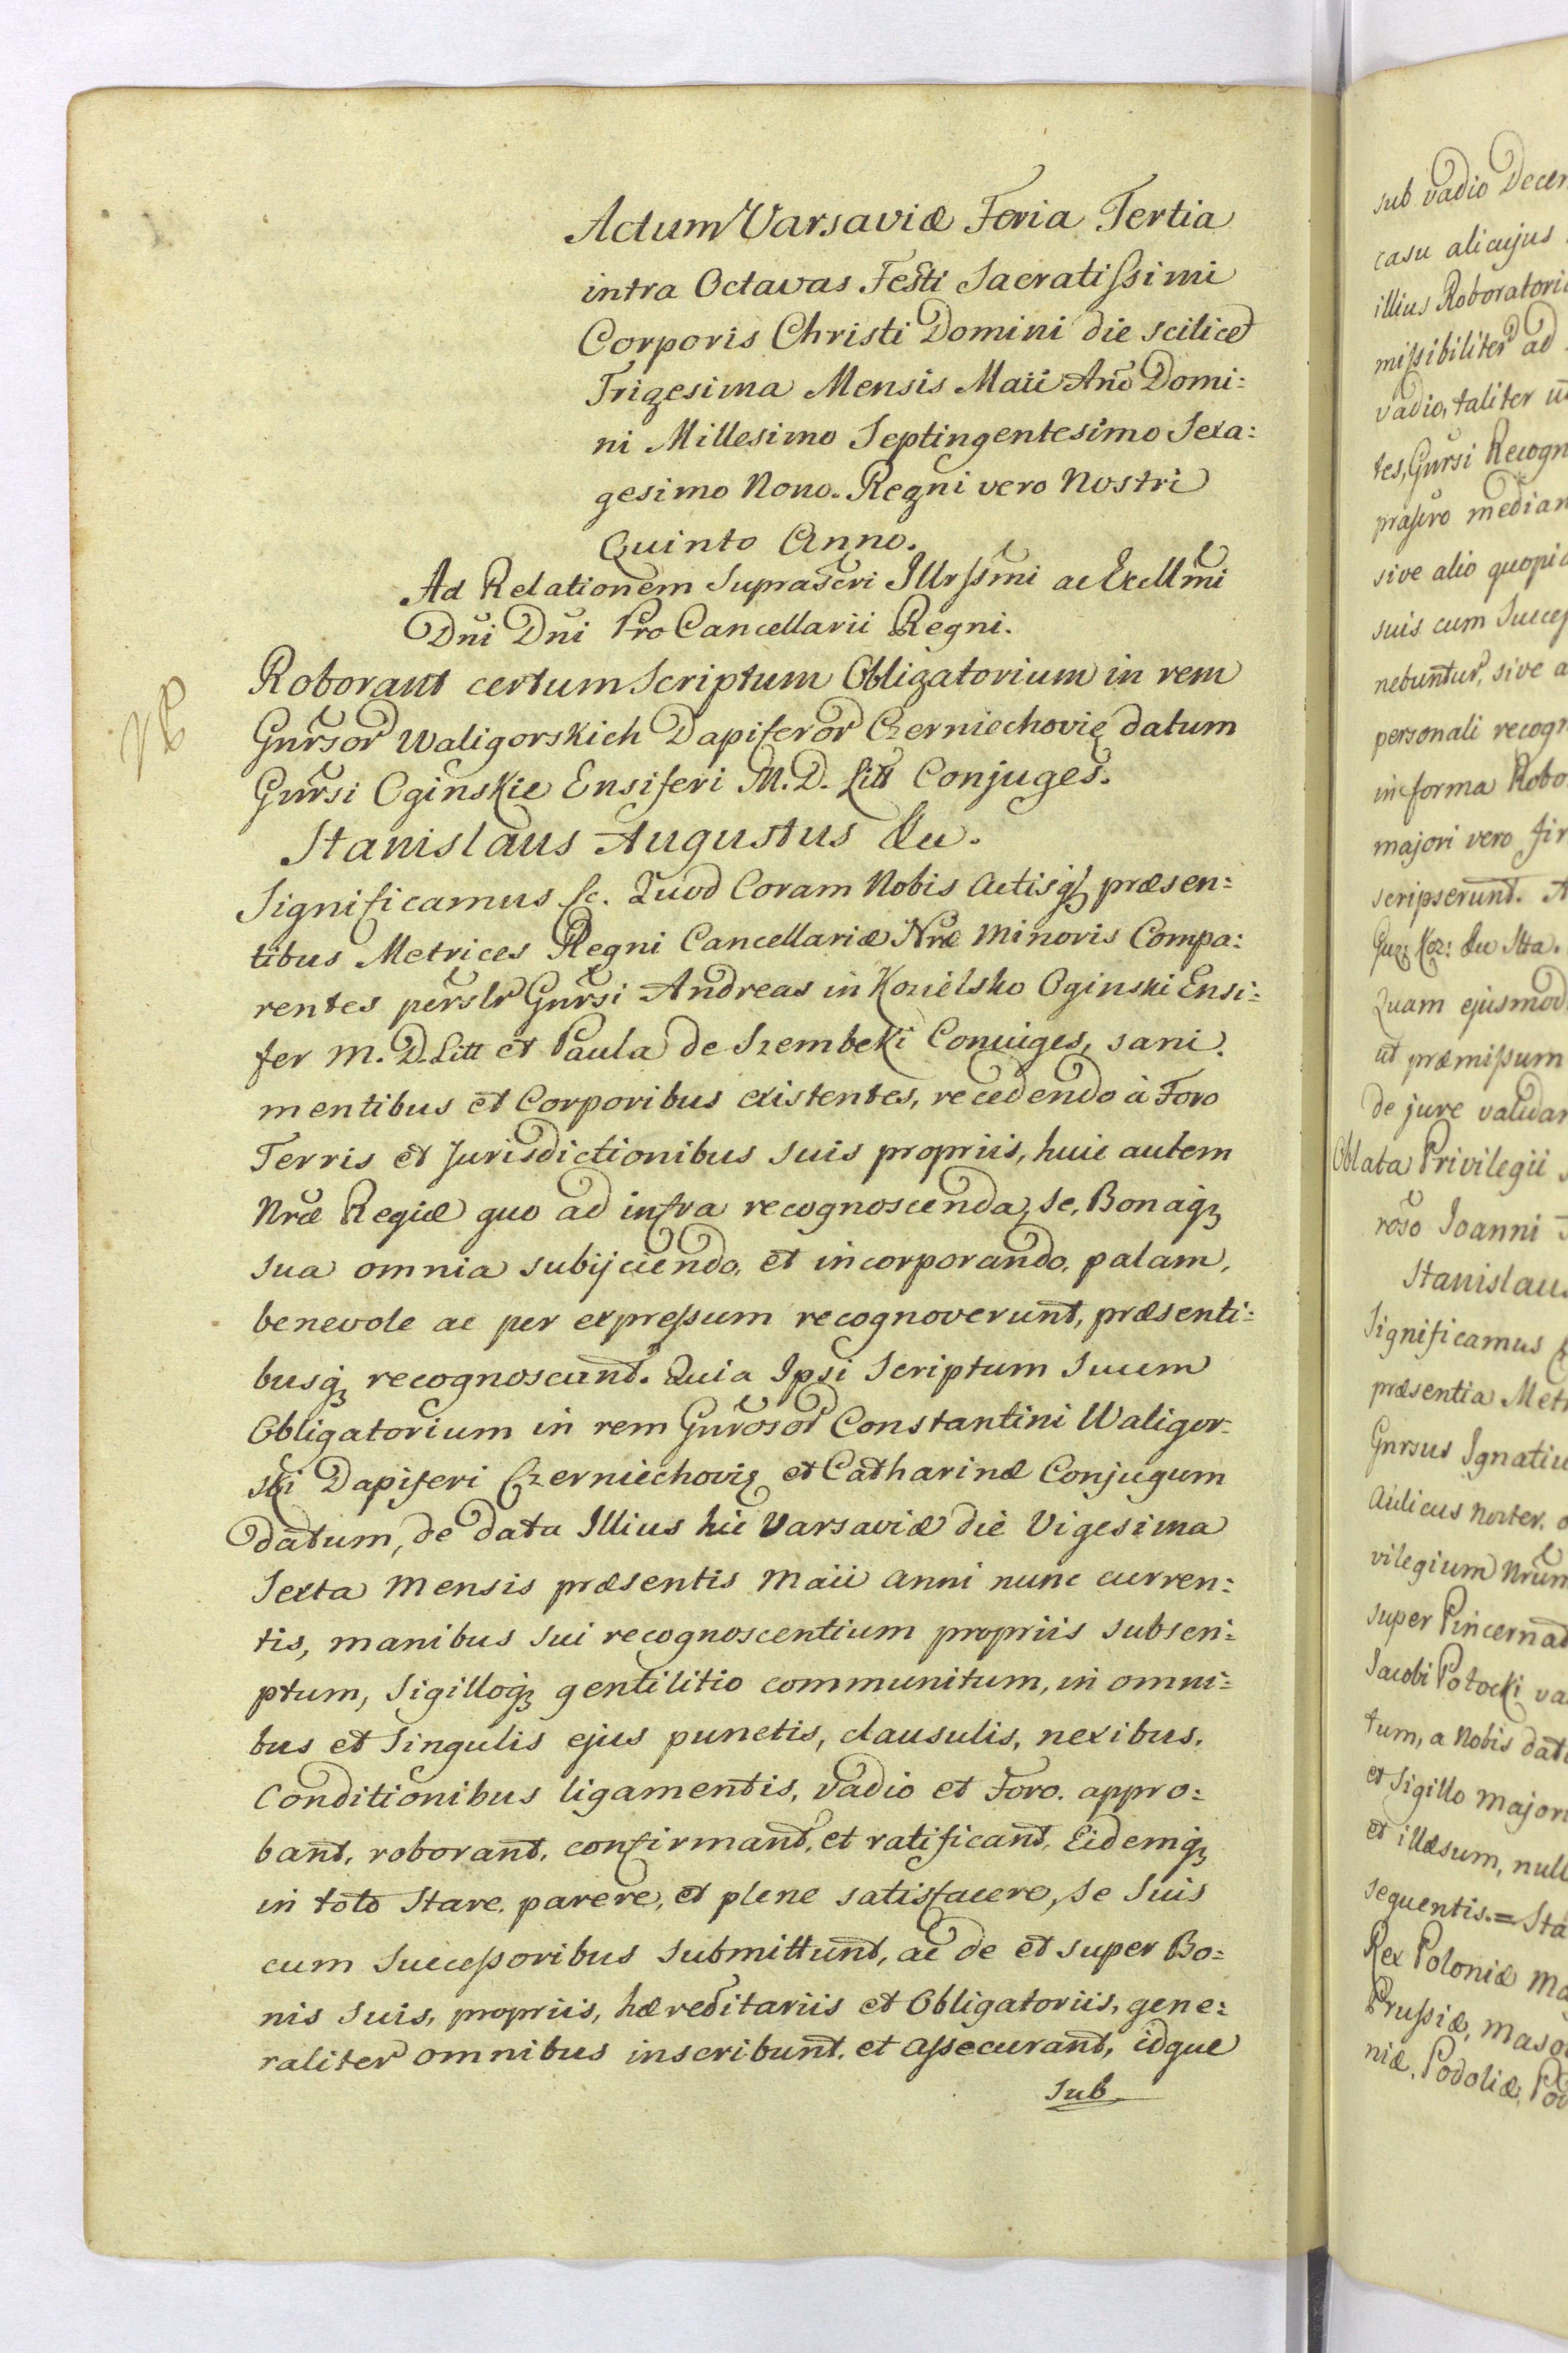 Actum Varsaviæ Feria Tertia
intra Octavas Festi Sacratissimi
Corporis Christi Domini die scilicet
Trigesima Mensis Maii Año Domi:
ni Millesimo Septingentesimo Sexa:
gesimo Nono. Regni vero Nostri
Quinto Anno.
Ad Relationem Suprascri Illrssmi ac Excllmi
Dni Dni Pro Cancellarii Regni.
Roborant certum Scriptum Obligatorium in rem
Gnrsor Waligorskich Dapiferor Czerniechovię datum
Gnrsi Oginskie Ensiferi M. D. Litt Conjuges.
Stanislaus Augustus &c.
Significamus &c. Quod Coram Nobis Actisq₃ præsen:
tibus Metrices Regni Cancellariæ Nræ Minoris Compa:
rentes perslr Gnrsi Andreas in Kozielsko Oginski Ensi:
fer M. D. Litt et Paula de Szembeki Coniuges, sani.
mentibus et Corporibus existentes, recedendo à Foro
Terris et Jurisdictionibus suis propriis, huic autem
Nræ Regiæ quo ad infra recognoscenda, se, Bonaq₃
sua omnia subijciendo, et incorporando, palam,
benevole ac per expressum recognoverunt, præsenti:
busq₃ recognoscunt. Quia Ipsi Scriptum Suum
Obligatorium in rem Gnrosor Constantini Waligor-
ski Dapiferi Czerniechovię et Catharinæ Conjugum
datum, de data Illius hic Varsaviæ die Vigesima
Sexta Mensis præsentis Maii anni nunc curren:
tis, manibus sui recognoscentium propriis subscri:
ptum, Sigilloq₃ gentilitio communitum, in omni:
bus et Singulis ejus punctis, clausulis, nexibus,
Conditionibus ligamentis, vadio et Foro. appro:
bant, roborant, confirmant, et ratificant, Eidemq₃
in toto Stare, parere, et plene satisfacere, se suis
cum Successoribus submittunt, ac de et super Bo:
nis suis, propriis, hæreditariis et Obligatoriis, gene:
raliter omnibus inscribunt, et assecurant, idque
Sub
sub vadio
casu alicujus
illius
missibiliter ad
vadio, taliter
tes, Gnrsi
median
sive alio
suis cum
nebuntur, sive
personali
in forma
majori vero
scripserunt.
Quam
ut præmissum
de jure
Oblata Privilegii
roso Joanni
Stanislaus
Significamus
præsentia
Gnrsus
Aulicus Noster,
vilegium Nrum
super
Jacobi Potocki
tum, a Nobis
et Sigillo
et illæsum,
sequentis. =
Rex Poloniæ
Prussiæ,
niæ, Podoliæ,